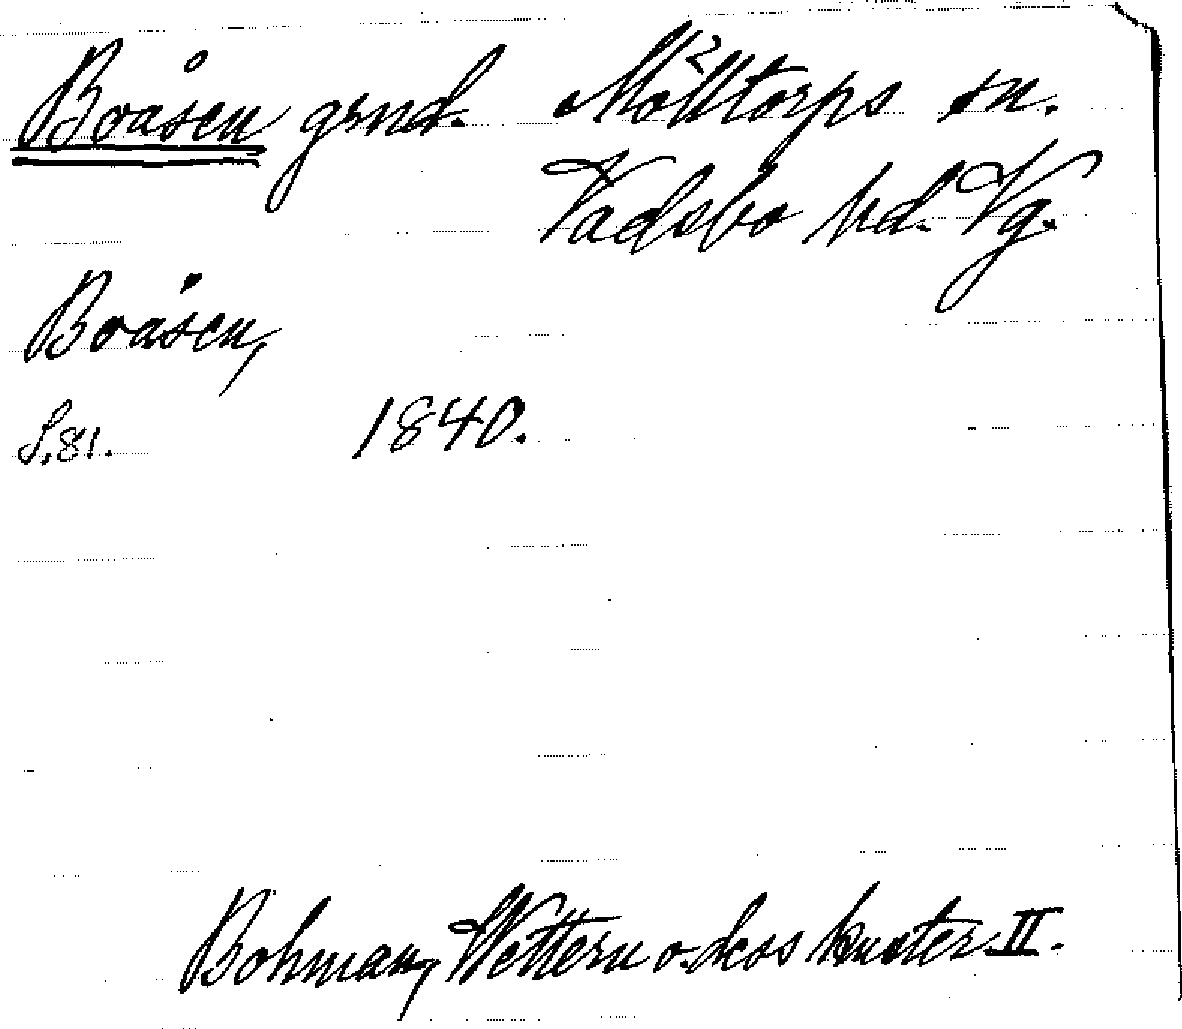 Boåsen grnd. Mölltorps sn.
Vadsbo hd. Vg.
Boåsen,
S.81. 1840.
Bohman, Wettern o. dess kuster II.